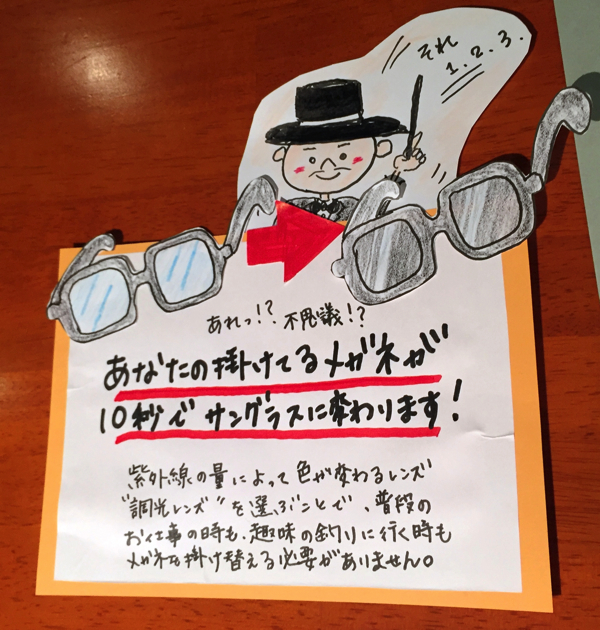 それ
1.2.3.
あれっ!?不思議!?
あなたの掛けてるメガネが
10秒でサングラスに変わります!
紫外線の量によって色が変わるレンズ
"調光レンズ"を選ぶことで、普段の
お仕事の時も、趣味の釣りに行く時も
メガネを掛け替える必要がありません。